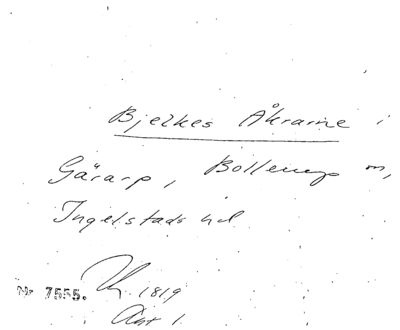 Bjelkes Åkrarne i
Gärarp, Bollerup m,
Ingelstads hd
Nr 7555. 1819
Ant 1